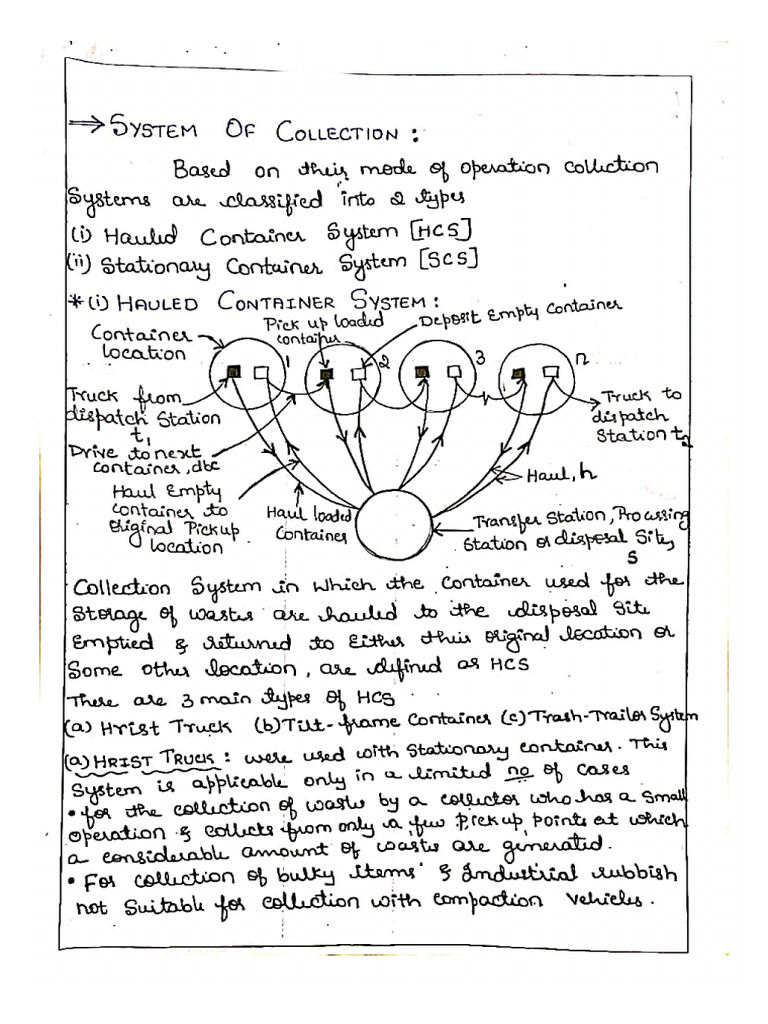 ⇒ SYSTEM OF COLLECTION :
Based on their mode of operation collection
Systems are classified into 2 types
(i) Hauled Container System [HCS]
(ii) Stationary Container System [SCS]
* (i) HAULED CONTAINER SYSTEM :
Container location
Pick up loaded container
Deposit Empty Container
1
2
3
n
Truck from
dispatch Station
t1
Truck to
dispatch
Station t2
Drive to next
container, dbc
Haul Empty
container to
original Pickup
location
Haul loaded
Container
Haul, h
Transfer Station, Processing
Station or disposal Site,
S
Collection System in which the container used for the
Storage of wastes are hauled to the disposal Site
Emptied & returned to Either their original location or
Some other location, are defined as HCS
There are 3 main types of HCS
(a) Hrist Truck (b) Tilt-frame Container (c) Trash-Trailer System
(a) HRIST TRUCK : were used with Stationary container. This
System is applicable only in a limited no of cases
• for the collection of waste by a collector who has a Small
operation & collects from only a few Pickup points at which
a considerable amount of wastes are generated.
• For collection of bulky items & Industrial rubbish
not Suitable for collection with compaction vehicles.